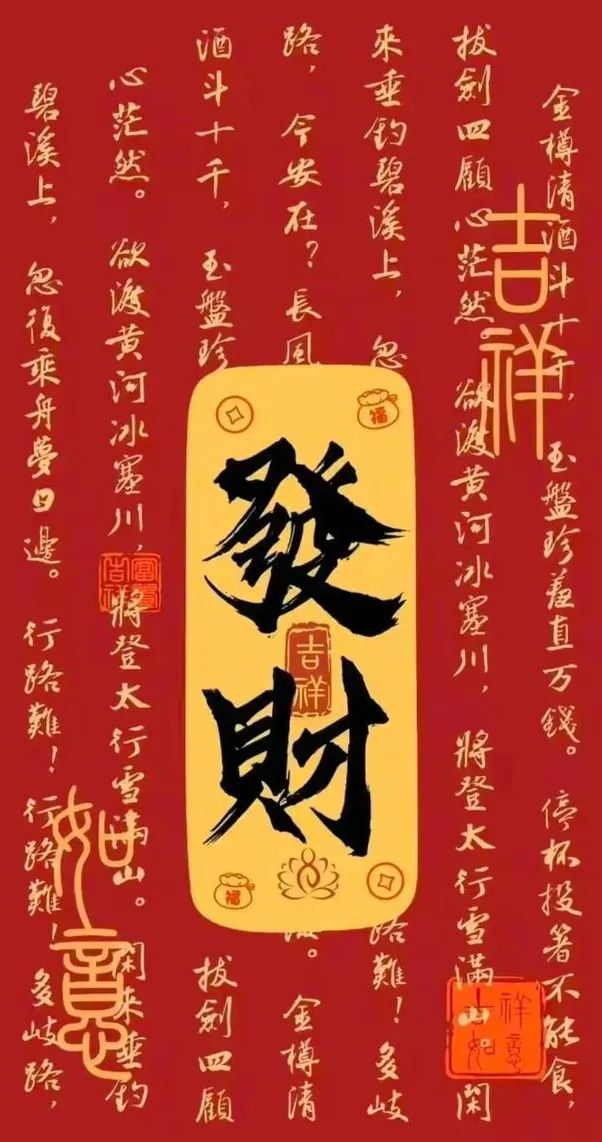 金樽清酒斗十千，玉盤珍羞直万錢。停杯投箸不能食，
拔劍四顧心茫然。欲渡黄河冰塞川，將登太行雪滿山。閑
來垂釣碧溪上，忽
路難！多岐
路，今安在？長風
海。金樽清
酒斗十千，玉盤珍
拔劍四顧
心茫然。欲渡黄河冰塞川，將登太行雪滿山。閑來垂釣
碧溪上，忽復乘舟夢日邊。行路難！行路難！多岐路，
吉祥
福
發財
吉祥
福
富貴
吉祥
如意
吉祥
如意